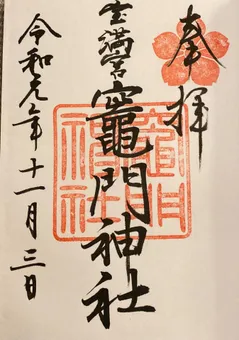 奉拝
宝満宮
竈門神社
令和元年十一月三日
竈門神社